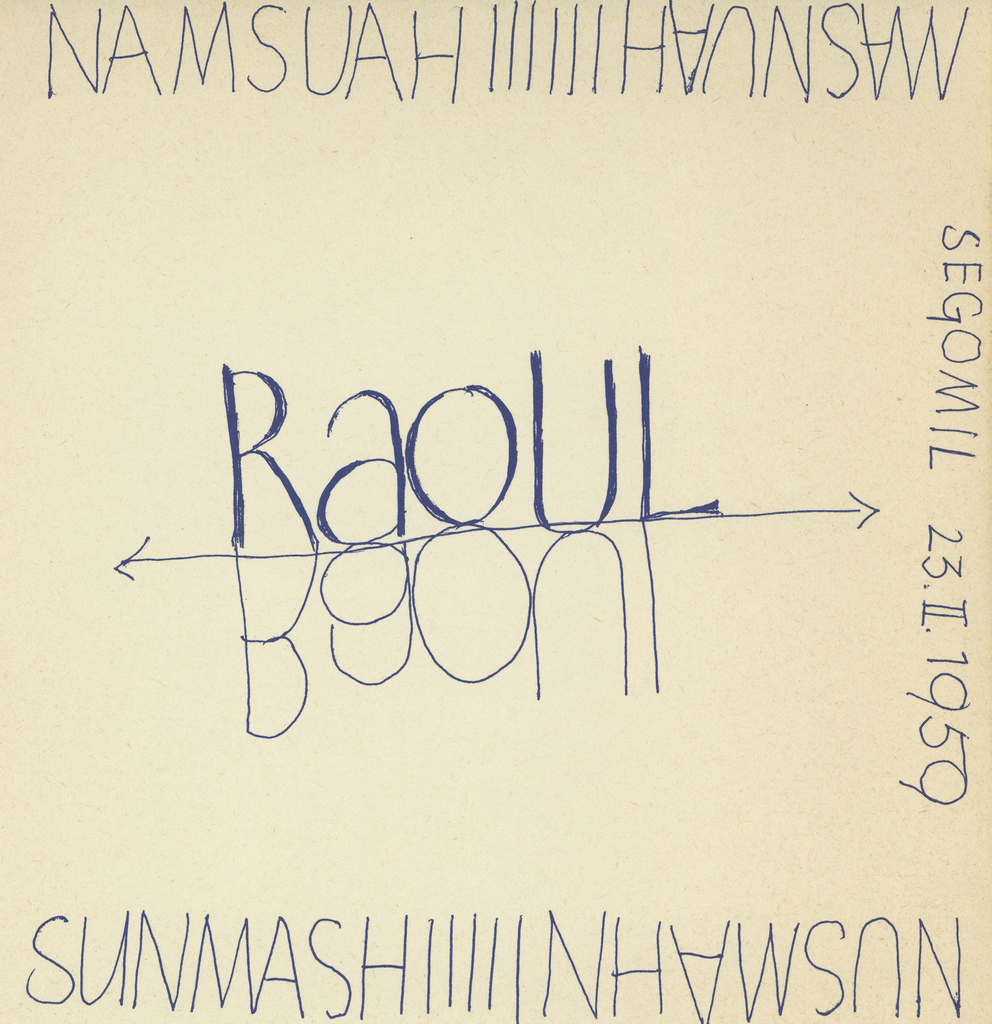 NAMSUAHIIIIIIHAUNSAM
RaOUL
SEGOMIL 23.II.1959
SUNMASHIIIIINHAMSUN